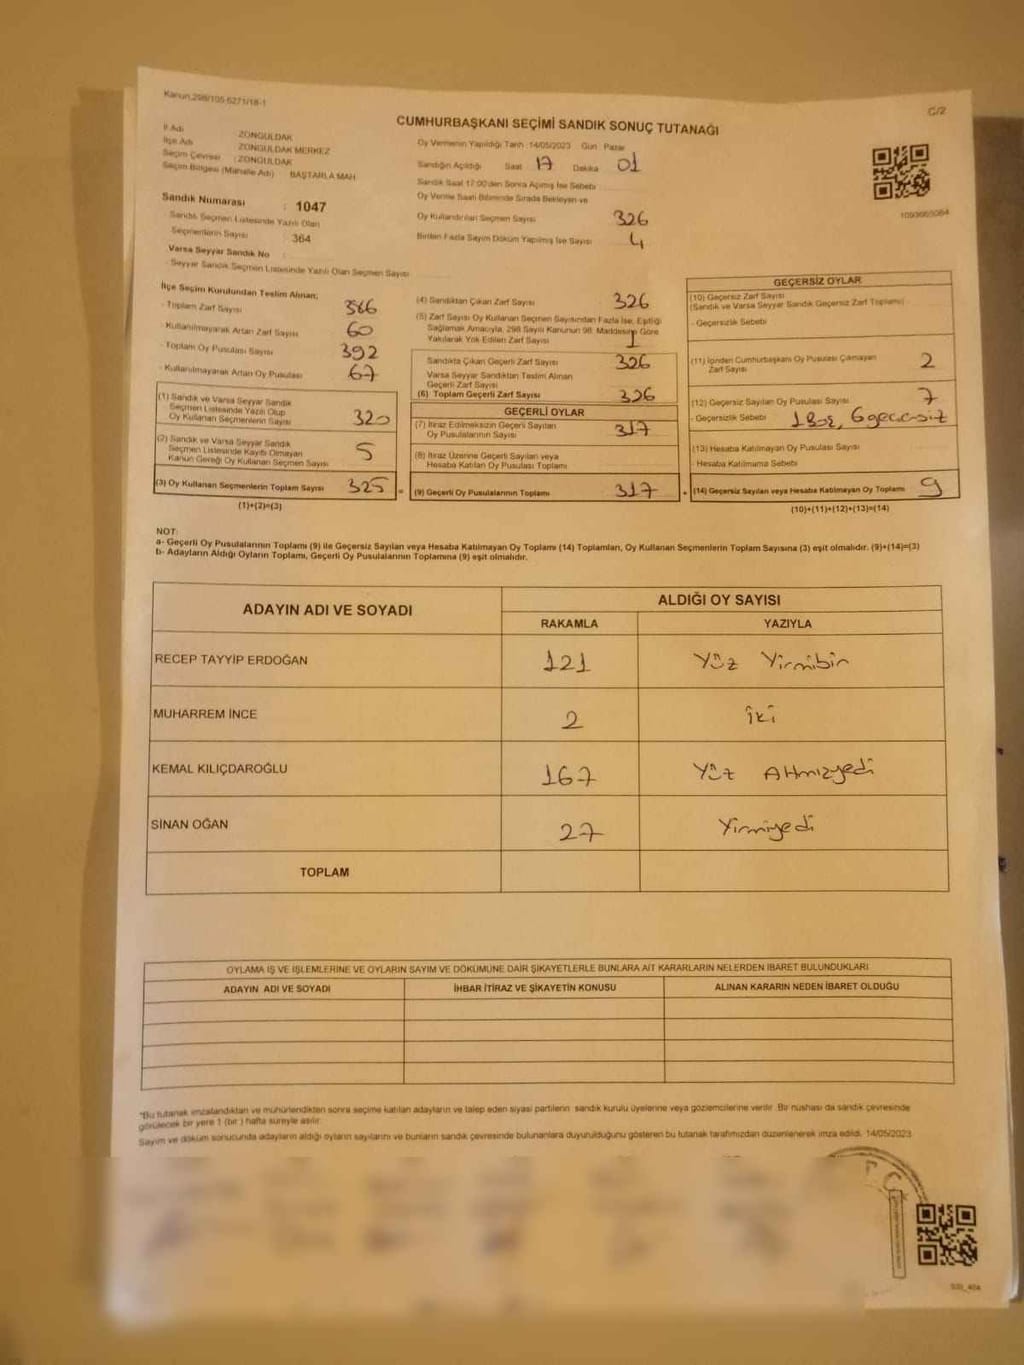 Kanun 298/105-6271/18-1
C/2
CUMHURBAŞKANI SEÇİMİ SANDIK SONUÇ TUTANAĞI
İl Adı ZONGULDAK
İlçe Adı ZONGULDAK MERKEZ
Seçim Çevresi : ZONGULDAK
Seçim Bölgesi (Mahalle Adı) BAŞTARLA MAH
Sandık Numarası : 1047
Sandık Seçmen Listesinde Yazılı Olan
Seçmenlerin Sayısı : 364
Varsa Seyyar Sandık No
- Seyyar Sandık Seçmen Listesinde Yazılı Olan Seçmen Sayısı
Oy Vermenin Yapıldığı Tarih 14/05/2023 Gün Pazar
Sandığın Açıldığı Saat 17 Dakika 01
Sandık Saat 17:00'den Sonra Açılmış İse Sebebi
Oy Verme Saati Bitiminde Sırada Bekleyen ve
Oy Kullandırılan Seçmen Sayısı 326
Birden Fazla Sayım Döküm Yapılmış İse Sayısı 4
1093665084
İlçe Seçim Kurulundan Teslim Alınan;
- Toplam Zarf Sayısı 386
- Kullanılmayarak Artan Zarf Sayısı 60
- Toplam Oy Pusulası Sayısı 392
- Kullanılmayarak Artan Oy Pusulası 67
(1) Sandık ve Varsa Seyyar Sandık
Seçmen Listesinde Yazılı Olup
Oy Kullanan Seçmenlerin Sayısı 320
(2) Sandık ve Varsa Seyyar Sandık
Seçmen Listesinde Kayıtlı Olmayan
Kanun Gereği Oy Kullanan Seçmen Sayısı 5
(3) Oy Kullanan Seçmenlerin Toplam Sayısı 325 =
(1)+(2)=(3)
(4) Sandıktan Çıkan Zarf Sayısı 326
(5) Zarf Sayısı Oy Kullanan Seçmen Sayısından Fazla İse, Eşitliği
Sağlamak Amacıyla, 298 Sayılı Kanunun 98. Maddesine Göre
Yakılarak Yok Edilen Zarf Sayısı 1
Sandıkta Çıkan Geçerli Zarf Sayısı 326
Varsa Seyyar Sandıktan Teslim Alınan
Geçerli Zarf Sayısı
(6) Toplam Geçerli Zarf Sayısı 326
GEÇERLİ OYLAR
(7) İtiraz Edilmeksizin Geçerli Sayılan
Oy Pusulalarının Sayısı 317
(8) İtiraz Üzerine Geçerli Sayılan veya
Hesaba Katılan Oy Pusulası Toplamı
(9) Geçerli Oy Pusulalarının Toplamı 317 +
GEÇERSİZ OYLAR
(10) Geçersiz Zarf Sayısı
(Sandık ve Varsa Seyyar Sandık Geçersiz Zarf Toplamı)
- Geçersizlik Sebebi
(11) İçinden Cumhurbaşkanı Oy Pusulası Çıkmayan
Zarf Sayısı 2
(12) Geçersiz Sayılan Oy Pusulası Sayısı 7
- Geçersizlik Sebebi 1 Boş, 6 geçersiz
(13) Hesaba Katılmayan Oy Pusulası Sayısı
- Hesaba Katılmama Sebebi
(14) Geçersiz Sayılan veya Hesaba Katılmayan Oy Toplamı 9
(10)+(11)+(12)+(13)=(14)
NOT:
a- Geçerli Oy Pusulalarının Toplamı (9) ile Geçersiz Sayılan veya Hesaba Katılmayan Oy Toplamı (14) Toplamları, Oy Kullanan Seçmenlerin Toplam Sayısına (3) eşit olmalıdır. (9)+(14)=(3)
b- Adayların Aldığı Oyların Toplamı, Geçerli Oy Pusulalarının Toplamına (9) eşit olmalıdır.
ADAYIN ADI VE SOYADI
ALDIĞI OY SAYISI
RAKAMLA YAZIYLA
RECEP TAYYİP ERDOĞAN 121 Yüz Yirmibir
MUHARREM İNCE 2 iki
KEMAL KILIÇDAROĞLU 167 Yüz Altmışyedi
SİNAN OĞAN 27 Yirmiyedi
TOPLAM
OYLAMA İŞ VE İŞLEMLERİNE VE OYLARIN SAYIM VE DÖKÜMÜNE DAİR ŞİKAYETLERLE BUNLARA AİT KARARLARIN NELERDEN İBARET BULUNDUKLARI
ADAYIN ADI VE SOYADI İHBAR İTİRAZ VE ŞİKAYETİN KONUSU ALINAN KARARIN NEDEN İBARET OLDUĞU
*Bu tutanak imzalandıktan ve mühürlendikten sonra seçime katılan adayların ve talep eden siyasi partilerin sandık kurulu üyelerine veya gözlemcilerine verilir. Bir nushası da sandık çevresinde
görülecek bir yere 1 (bir) hafta süreyle asılır.
Sayım ve döküm sonucunda adayların aldığı oyların sayılarını ve bunların sandık çevresinde bulunanlara duyurulduğunu gösteren bu tutanak tarafımızdan düzenlenerek imza edildi. 14/05/2023
T C